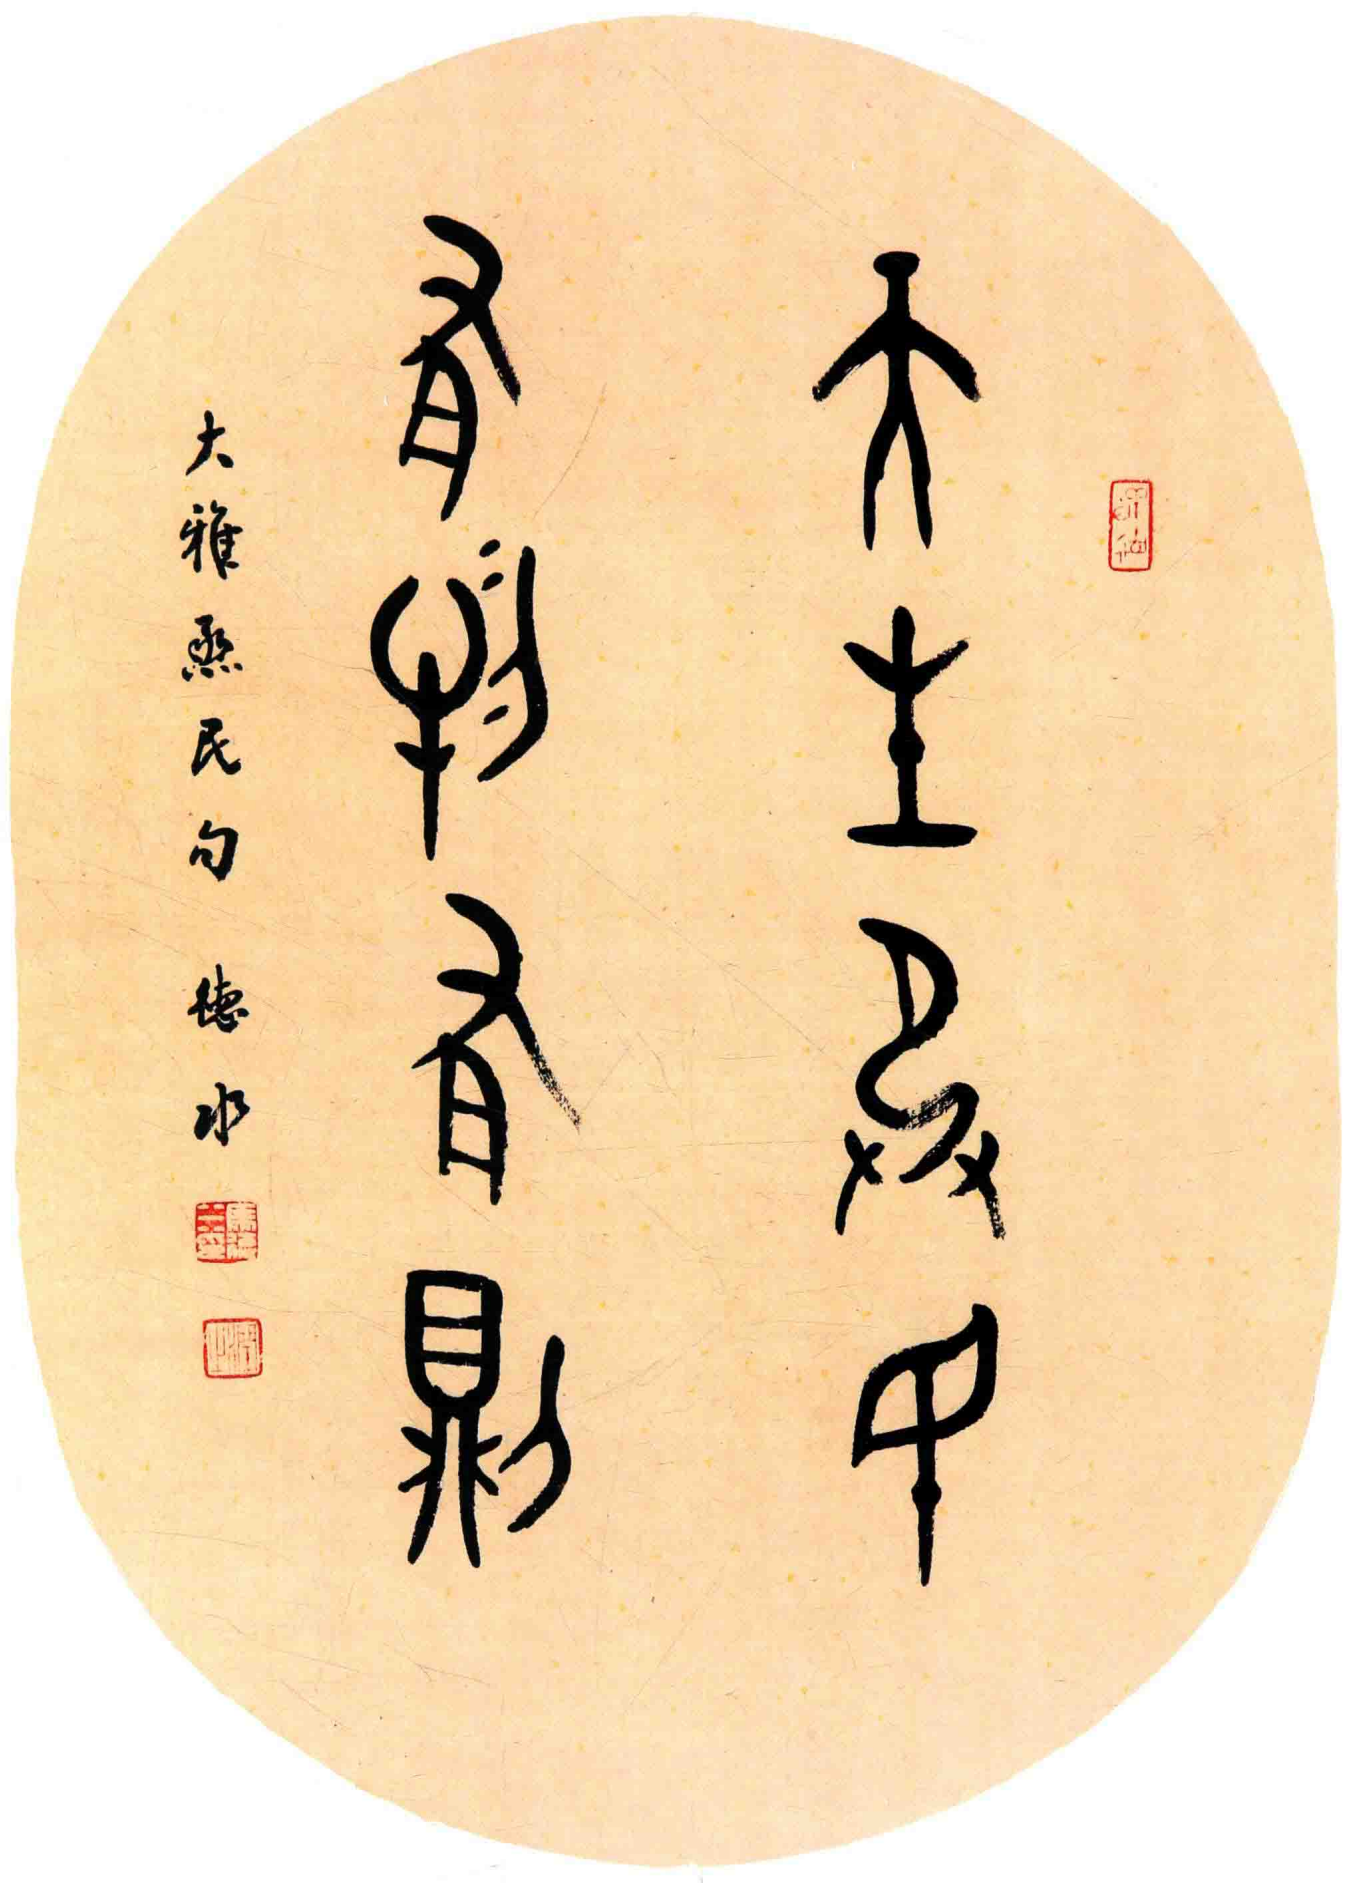 天生烝民
有物有則
大雅烝民句 德水